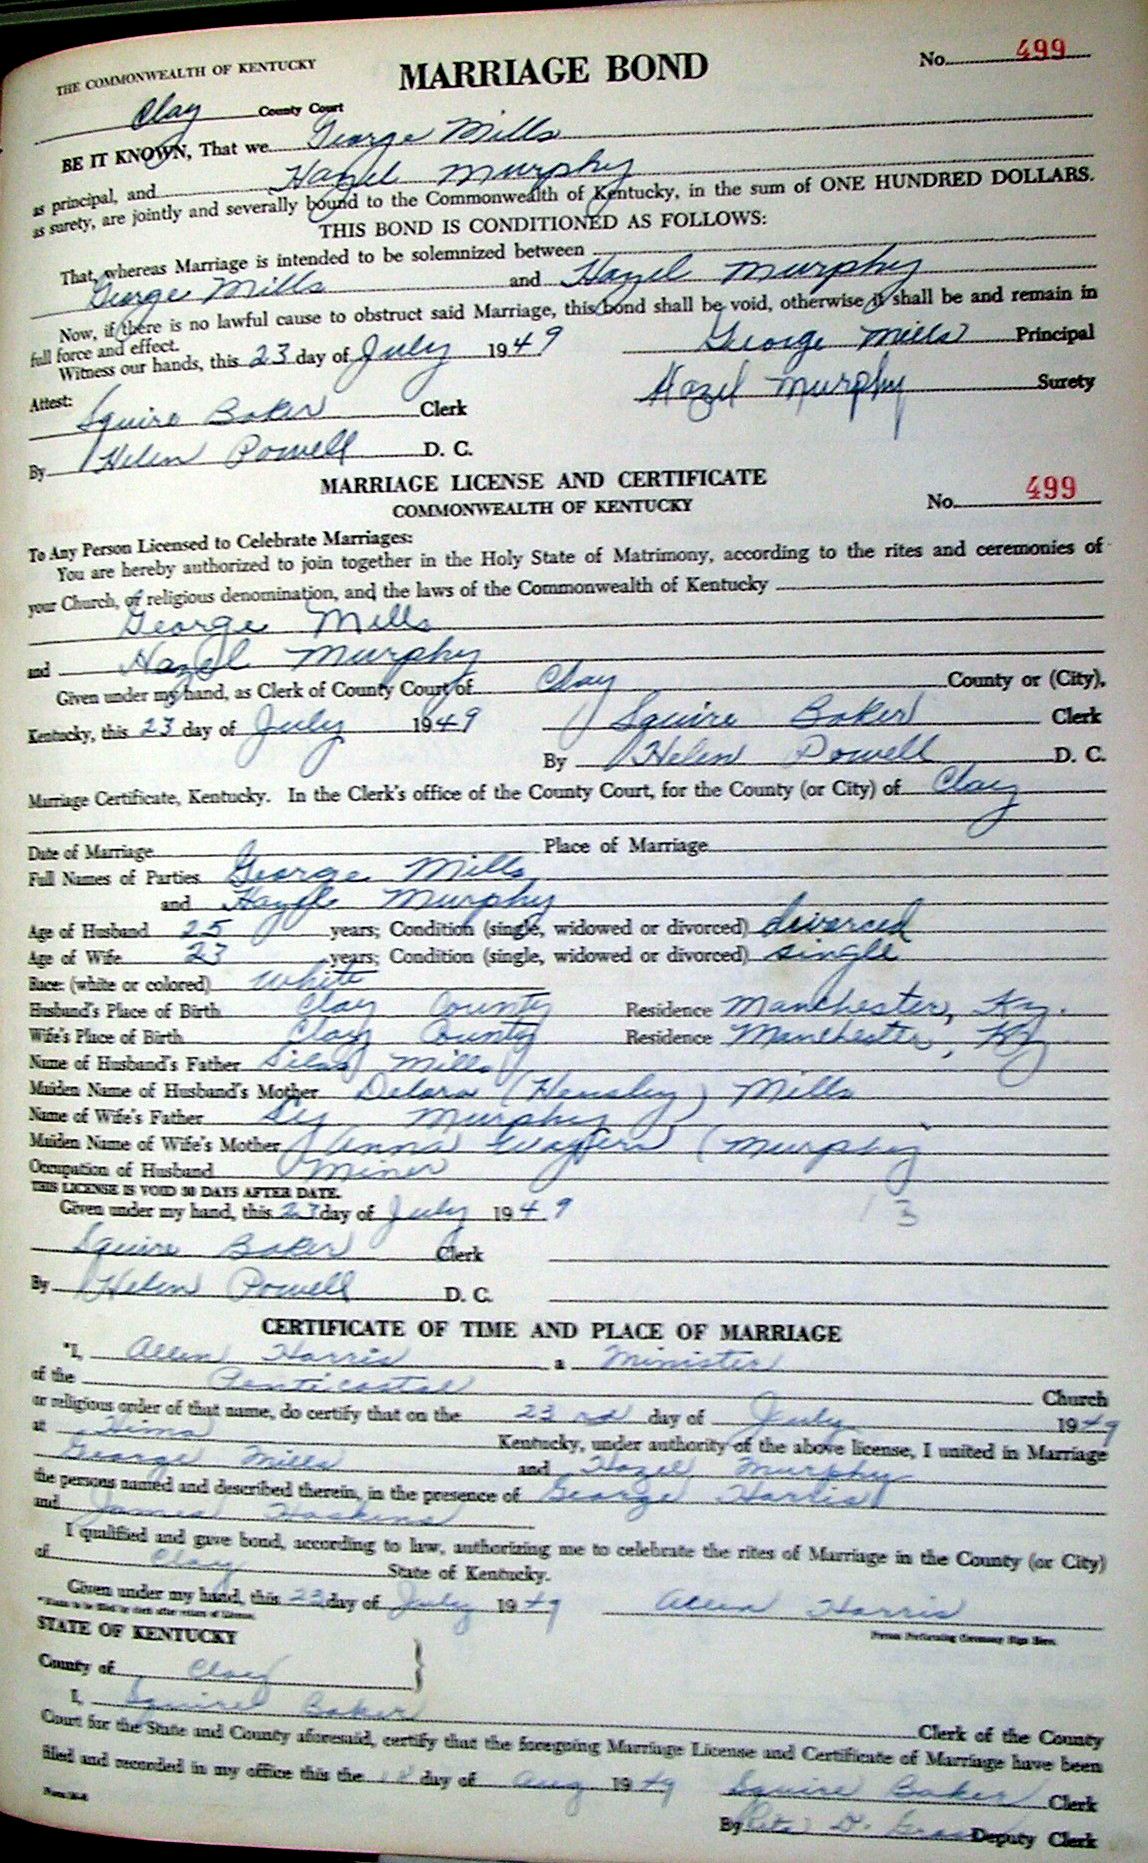 THE COMMONWEALTH OF KENTUCKY MARRIAGE BOND No. 499
Clay County Court
BE IT KNOWN, That we George Mills
as principal, and Hazel Murphy
as surety, are jointly and severally bound to the Commonwealth of Kentucky, in the sum of ONE HUNDRED DOLLARS.
THIS BOND IS CONDITIONED AS FOLLOWS:
That, whereas Marriage is intended to be solemnized between
George Mills and Hazel Murphy
Now, if there is no lawful cause to obstruct said Marriage, this bond shall be void, otherwise it shall be and remain in
full force and effect.
Witness our hands, this 23 day of July 1949 George Mills Principal
Attest: Hazel Murphy Surety
Squire Baker Clerk
By Helen Powell D. C.
MARRIAGE LICENSE AND CERTIFICATE
COMMONWEALTH OF KENTUCKY No. 499
To Any Person Licensed to Celebrate Marriages:
You are hereby authorized to join together in the Holy State of Matrimony, according to the rites and ceremonies of
your Church, or religious denomination, and the laws of the Commonwealth of Kentucky
George Mills
and Hazel Murphy
Given under my hand, as Clerk of County Court of Clay County or (City),
Kentucky, this 23 day of July 1949 Squire Baker Clerk
By Helen Powell D. C.
Marriage Certificate, Kentucky. In the Clerk's office of the County Court, for the County (or City) of Clay
Date of Marriage Place of Marriage
Full Names of Parties George Mills
and Hazel Murphy
Age of Husband 25 years; Condition (single, widowed or divorced) divorced
Age of Wife 23 years; Condition (single, widowed or divorced) single
Race: (white or colored) White
Husband's Place of Birth Clay County Residence Manchester, Ky.
Wife's Place of Birth Clay County Residence Manchester, Ky
Name of Husband's Father Silas Mills
Maiden Name of Husband's Mother Delora (Hensley) Mills
Name of Wife's Father Murphy
Maiden Name of Wife's Mother Anna (Murphy
Occupation of Husband Miner
THIS LICENSE IS VOID 30 DAYS AFTER DATE.
Given under my hand, this day of July 1949 13
Squire Baker Clerk
By Helen Powell D. C.
CERTIFICATE OF TIME AND PLACE OF MARRIAGE
*I, Allen Harris a Minister
of the Penticostal Church
or religious order of that name, do certify that on the 23rd day of July 1949
at Hima Kentucky, under authority of the above license, I united in Marriage
George Mills and Hazel Murphy
the persons named and described therein, in the presence of George Harris
and James Hoskins
I qualified and gave bond, according to law, authorizing me to celebrate the rites of Marriage in the County (or City)
of Clay State of Kentucky.
Given under my hand, this 23 day of July 1949 Allen Harris
Person Performing Ceremony Sign Here.
STATE OF KENTUCKY
County of Clay
I, Squire Baker Clerk of the County
Court for the State and County aforesaid, certify that the foregoing Marriage License and Certificate of Marriage have been
filed and recorded in my office this the 18 day of Aug 1949 Squire Baker Clerk
By D. Deputy Clerk